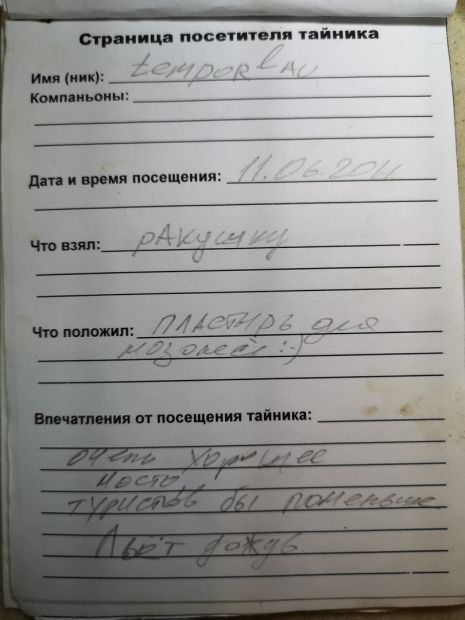 Страница посетителя тайника
Имя (ник):
Компаньоны:
Дата и время посещения: 11.06.2011
Что взял: ракушку
Что положил: пластырь для
мозолей :-)
Впечатления от посещения тайника:
очень хорошее
место,
туристов бы поменьше.
Льёт дождь.